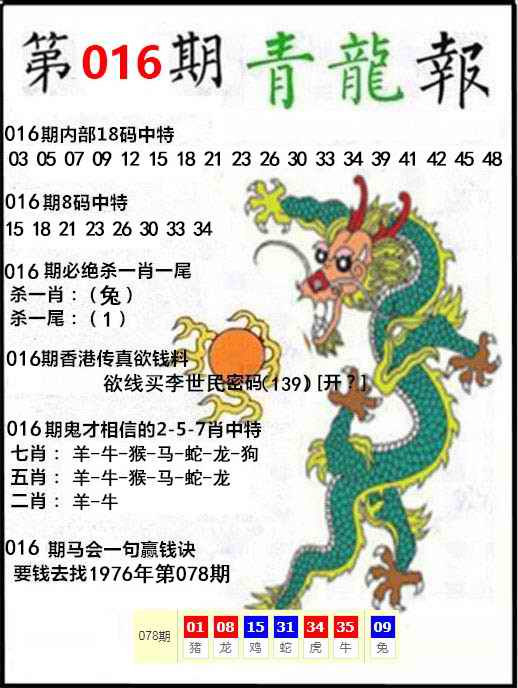 第016期青龍報
016期内部18码中特
03 05 07 09 12 15 18 21 23 26 30 33 34 39 41 42 45 48
016期8码中特
15 18 21 23 26 30 33 34
016期必绝杀一肖一尾
杀一肖：（兔）
杀一尾：（1）
016期香港传真欲钱料
欲线买李世民密码(139) [开？]
016期鬼才相信的2-5-7肖中特
七肖：羊-牛-猴-马-蛇-龙-狗
五肖：羊-牛-猴-马-蛇-龙
二肖：羊-牛
016 期马会一句赢钱诀
要钱去找1976年第078期
078期 01 08 15 31 34 35 09
猪 龙 鸡 蛇 虎 牛 兔